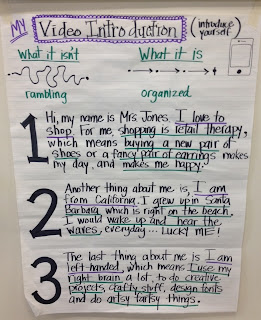 MY Video Introduction (introduce yourself)
What it isn't
What it is
rambling
organized
1
Hi, my name is Mrs. Jones. I love to
shop. For me, shopping is retail therapy,
which means buying a new pair of
shoes or a fancy pair of earrings makes
my day, and makes me happy.
2
Another thing about me is, I am
from California. I grew up in Santa
Barbara, which is right on the beach.
I would wake up and hear the
waves, everyday... LUCKY ME!
3
The last thing about me is I am
left-handed, which means I use my
right brain a lot, to do creative
projects, crafty stuff, design fonts
and do artsy fartsy things.